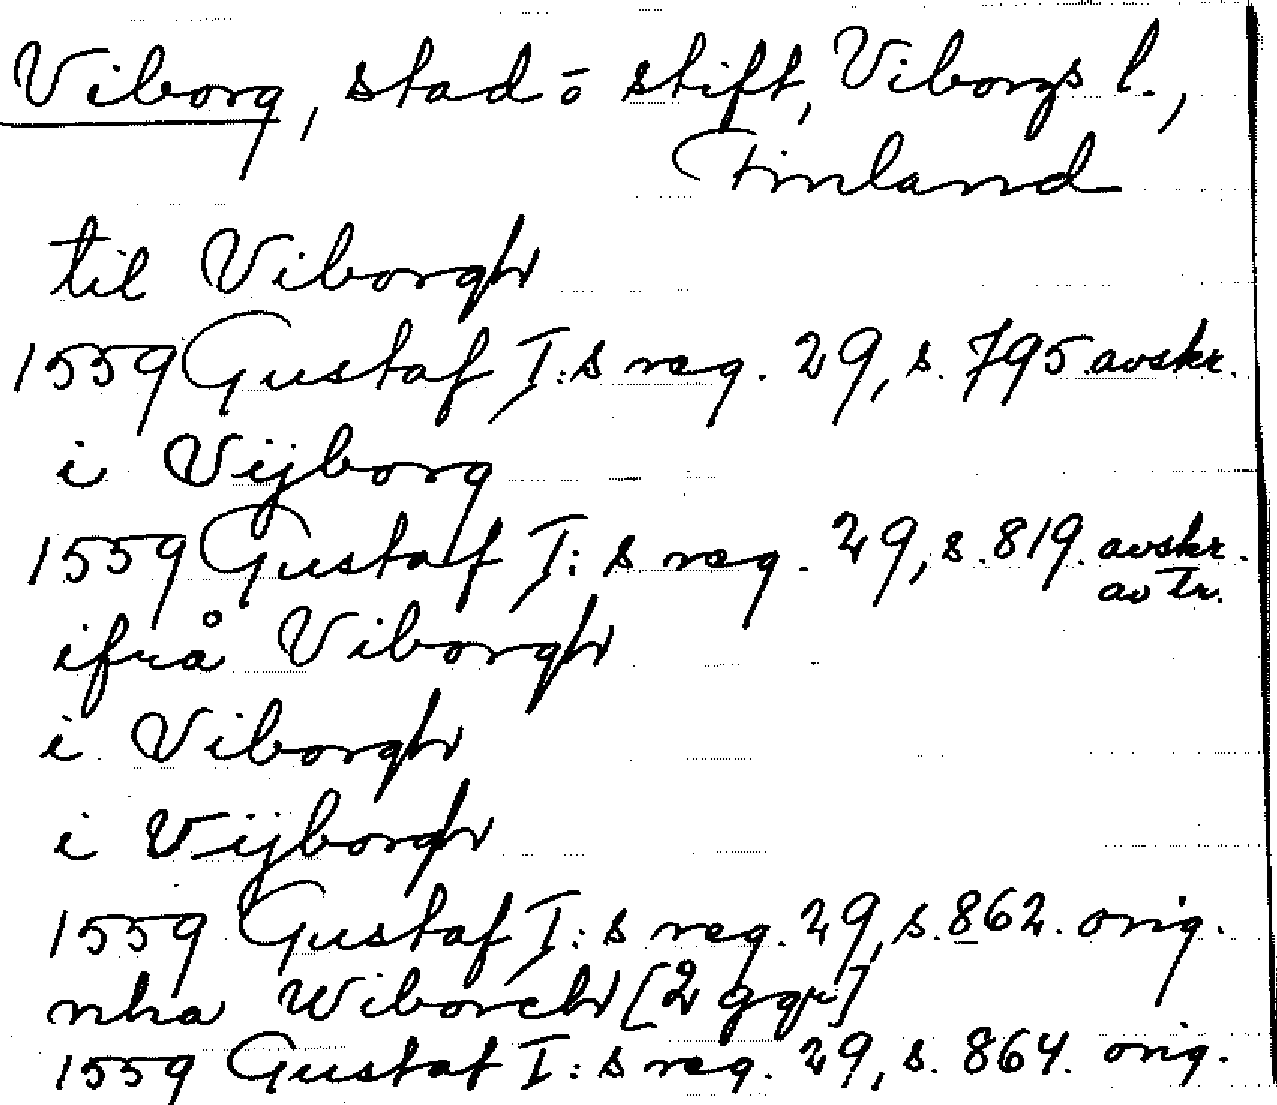 Viborg, stad o stift, Viborgs l.,
Finland
til Viborgh
1559 Gustaf I:s reg. 29, s. 795 avskr.
i Vijborg
1559 Gustaf I:s reg. 29, s. 819. avskr.
av tr.
ifrå Viborgh
i Viborgh
i Vijborgh
1559 Gustaf I:s reg. 29, s. 862. orig.
nha Wiborch [2 ggr]
1559 Gustaf I:s reg. 29, s. 864. orig.